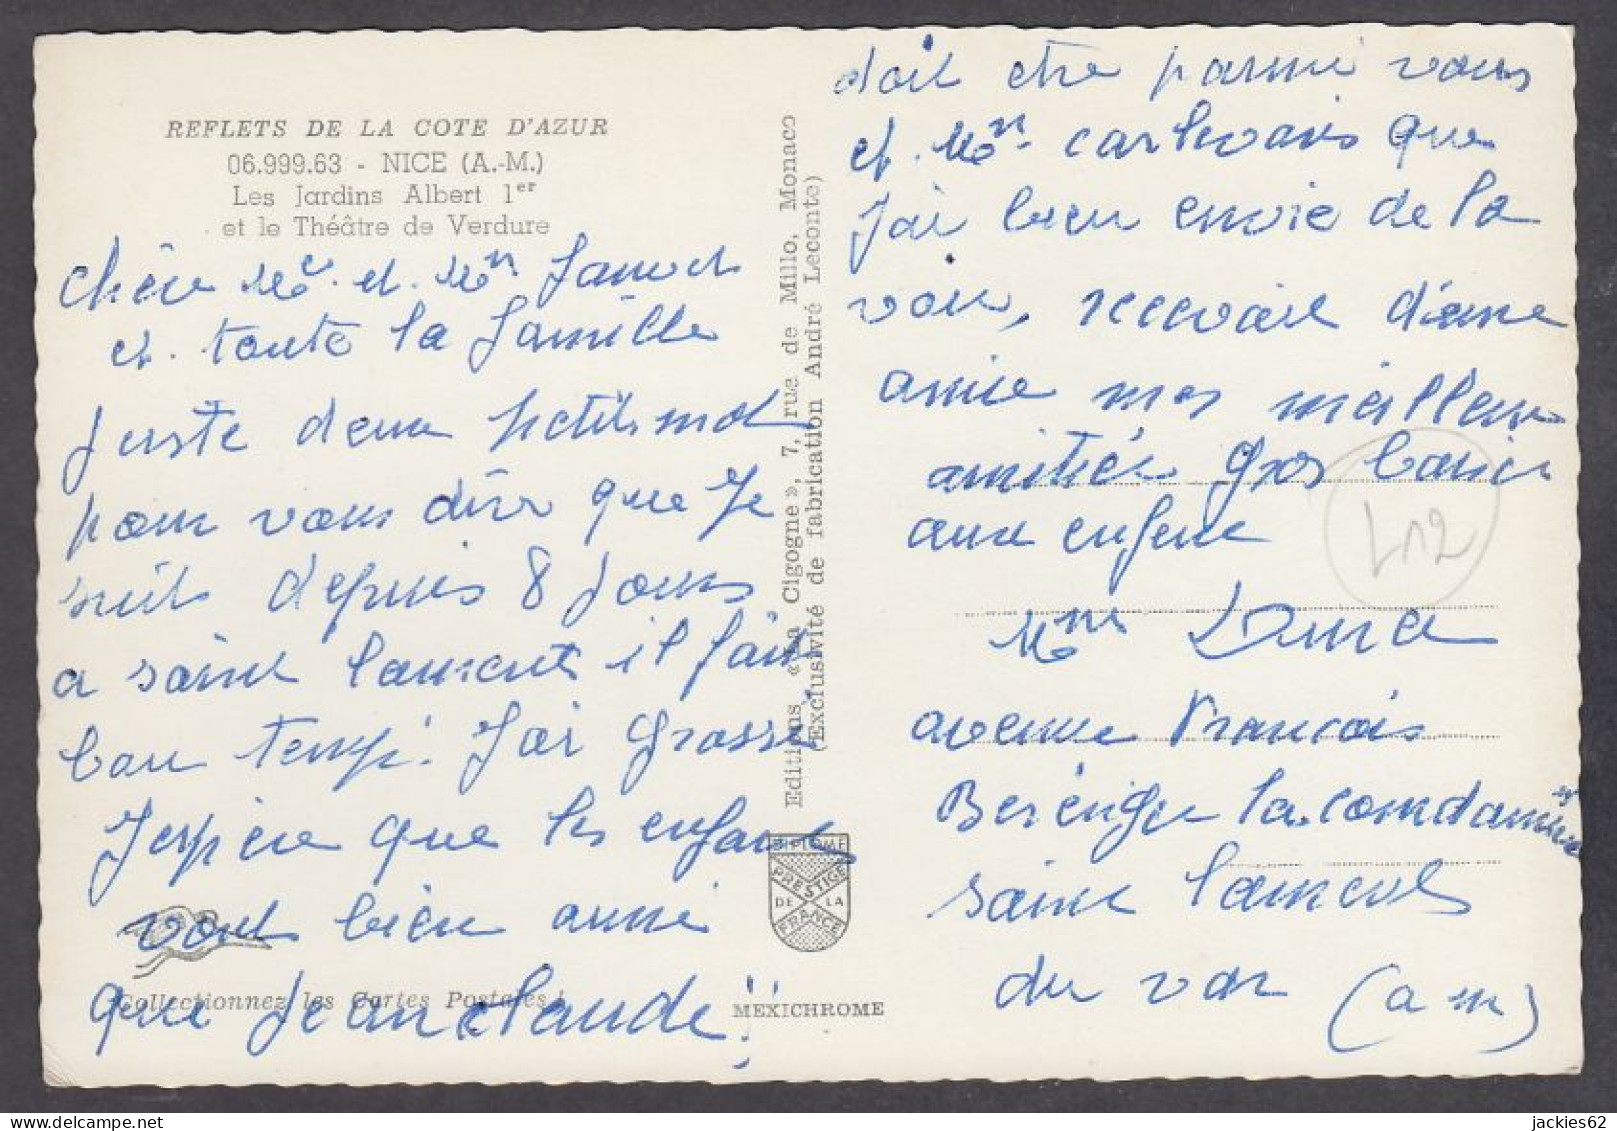 REFLETS DE LA COTE D'AZUR
06.999.63 - NICE (A.-M.)
Les Jardins Albert 1er
et le Théâtre de Verdure
chère Me. et. Mr
et. toute la famille
Juste deux petits mot
pour vous dire que Je
suis depuis 8 Jours
a saint laurent il fait
bau temp. J'ai Grossi
J'espère que les enfants
vont bien aussi
que Jean claude!!
Collectionnez les Cartes Postales!
Editions «La Cigogne», 7, rue de Millo, Monaco
(Exclusivité de fabrication André Leconte)
DIPLOME
PRESTIGE
DE LA
FRANCE
MEXICHROME
doit etre parmi vous
et. Mr. que
J'ai bien envie de la
voir, recevoir d'une
amie mes meilleur
amitiés Gros baiser
aux enfent
L12
Mme
avenue Francois
Berenger la condamine
saint laurent
du var (a m)
jackies62